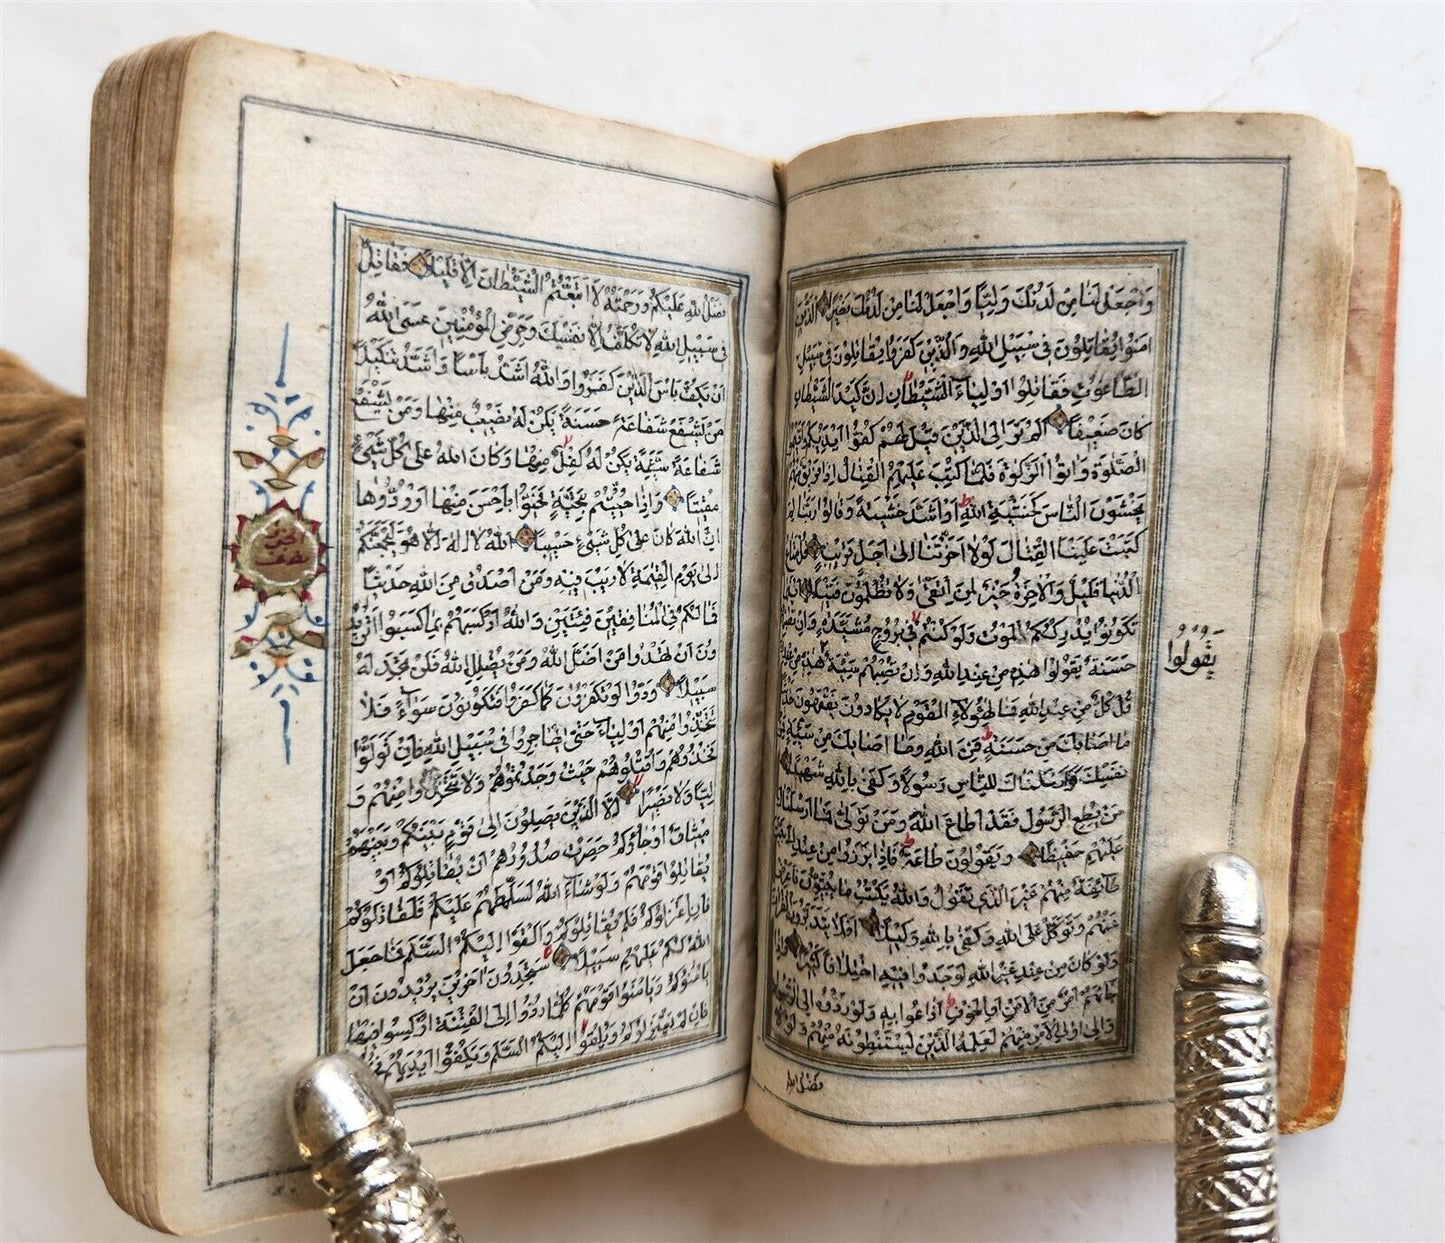 وَاجْعَلْ لَنَا مِنْ لَدُنْكَ وَلِيًّا وَاجْعَلْ لَنَا مِنْ لَدُنْكَ نَصِيرًا الَّذِينَ
امَنُوا يُقَاتِلُونَ فِي سَبِيلِ اللهِ وَالَّذِينَ كَفَرُوا يُقَاتِلُونَ فِي سَبِيلِ
الطَّاغُوتِ فَقَاتِلُوا اَوْلِيَاءَ الشَّيْطَانِ اِنَّ كَيْدَ الشَّيْطَانِ
كَانَ ضَعِيفًا اَلَمْ تَرَ اِلَى الَّذِينَ قِيلَ لَهُمْ كُفُّوا اَيْدِيَكُمْ وَاَقِيمُوا
الصَّلٰوةَ وَاتُوا الزَّكٰوةَ فَلَمَّا كُتِبَ عَلَيْهِمُ الْقِتَالُ اِذَا فَرِيقٌ مِنْهُمْ
يَخْشَوْنَ النَّاسَ كَخَشْيَةِ اللهِ اَوْ اَشَدَّ خَشْيَةً وَقَالُوا رَبَّنَا لِمَ
كَتَبْتَ عَلَيْنَا الْقِتَالَ لَوْلَا اَخَّرْتَنَا اِلٰى اَجَلٍ قَرِيبٍ قُلْ مَتَاعُ
الدُّنْيَا قَلِيلٌ وَالْاٰخِرَةُ خَيْرٌ لِمَنِ اتَّقٰى وَلَا تُظْلَمُونَ فَتِيلًا اَيْنَمَا
تَكُونُوا يُدْرِكْكُمُ الْمَوْتُ وَلَوْ كُنْتُمْ فِي بُرُوجٍ مُشَيَّدَةٍ وَاِنْ تُصِبْهُمْ
حَسَنَةٌ يَقُولُوا هٰذِهِ مِنْ عِنْدِ اللهِ وَاِنْ تُصِبْهُمْ سَيِّئَةٌ
يَقُولُوا
هٰذِهِ مِنْ عِنْدِكَ
قُلْ كُلٌّ مِنْ عِنْدِ اللهِ فَمَالِ هٰؤُلَاءِ الْقَوْمِ لَا يَكَادُونَ يَفْقَهُونَ حَدِيثًا
مَا اَصَابَكَ مِنْ حَسَنَةٍ فَمِنَ اللهِ وَمَا اَصَابَكَ مِنْ سَيِّئَةٍ فَمِنْ
نَفْسِكَ وَاَرْسَلْنَاكَ لِلنَّاسِ رَسُولًا وَكَفٰى بِاللهِ شَهِيدًا
مَنْ يُطِعِ الرَّسُولَ فَقَدْ اَطَاعَ اللهَ وَمَنْ تَوَلّٰى فَمَا اَرْسَلْنَاكَ
عَلَيْهِمْ حَفِيظًا وَيَقُولُونَ طَاعَةٌ فَاِذَا بَرَزُوا مِنْ عِنْدِكَ بَيَّتَ
طَائِفَةٌ مِنْهُمْ غَيْرَ الَّذِي تَقُولُ وَاللهُ يَكْتُبُ مَا يُبَيِّتُونَ فَاَعْرِضْ
عَنْهُمْ وَتَوَكَّلْ عَلَى اللهِ وَكَفٰى بِاللهِ وَكِيلًا اَفَلَا يَتَدَبَّرُونَ الْقُرْاٰنَ
وَلَوْ كَانَ مِنْ عِنْدِ غَيْرِ اللهِ لَوَجَدُوا فِيهِ اخْتِلَافًا كَثِيرًا وَاِذَا
جَاءَهُمْ اَمْرٌ مِنَ الْاَمْنِ اَوِ الْخَوْفِ اَذَاعُوا بِهِ وَلَوْ رَدُّوهُ اِلَى الرَّسُولِ
وَاِلٰى اُولِي الْاَمْرِ مِنْهُمْ لَعَلِمَهُ الَّذِينَ يَسْتَنْبِطُونَهُ مِنْهُمْ وَلَوْلَا
فَضْلُ اللهِ
فَضْلُ اللهِ عَلَيْكُمْ وَرَحْمَتُهُ لَاتَّبَعْتُمُ الشَّيْطَانَ اِلَّا قَلِيلًا فَقَاتِلْ
فِي سَبِيلِ اللهِ لَا تُكَلَّفُ اِلَّا نَفْسَكَ وَحَرِّضِ الْمُؤْمِنِينَ عَسَى اللهُ
اَنْ يَكُفَّ بَاْسَ الَّذِينَ كَفَرُوا وَاللهُ اَشَدُّ بَاْسًا وَاَشَدُّ تَنْكِيلًا
مَنْ يَشْفَعْ شَفَاعَةً حَسَنَةً يَكُنْ لَهُ نَصِيبٌ مِنْهَا وَمَنْ يَشْفَعْ
شَفَاعَةً سَيِّئَةً يَكُنْ لَهُ كِفْلٌ مِنْهَا وَكَانَ اللهُ عَلٰى كُلِّ شَيْءٍ
مُقِيتًا وَاِذَا حُيِّيتُمْ بِتَحِيَّةٍ فَحَيُّوا بِاَحْسَنَ مِنْهَا اَوْ رُدُّوهَا
اِنَّ اللهَ كَانَ عَلٰى كُلِّ شَيْءٍ حَسِيبًا اَللهُ لَا اِلٰهَ اِلَّا هُوَ لَيَجْمَعَنَّكُمْ
اِلٰى يَوْمِ الْقِيٰمَةِ لَا رَيْبَ فِيهِ وَمَنْ اَصْدَقُ مِنَ اللهِ حَدِيثًا
فَمَا لَكُمْ فِي الْمُنَافِقِينَ فِئَتَيْنِ وَاللهُ اَرْكَسَهُمْ بِمَا كَسَبُوا اَتُرِيدُ
ونَ اَنْ تَهْدُوا مَنْ اَضَلَّ اللهُ وَمَنْ يُضْلِلِ اللهُ فَلَنْ تَجِدَ لَهُ
سَبِيلًا وَدُّوا لَوْ تَكْفُرُونَ كَمَا كَفَرُوا فَتَكُونُونَ سَوَاءً فَلَا
تَتَّخِذُوا مِنْهُمْ اَوْلِيَاءَ حَتّٰى يُهَاجِرُوا فِي سَبِيلِ اللهِ فَاِنْ تَوَلَّوْا
فَخُذُوهُمْ وَاقْتُلُوهُمْ حَيْثُ وَجَدْتُمُوهُمْ وَلَا تَتَّخِذُوا مِنْهُمْ وَ
لِيًّا وَلَا نَصِيرًا اِلَّا الَّذِينَ يَصِلُونَ اِلٰى قَوْمٍ بَيْنَكُمْ وَبَيْنَهُمْ
مِيثَاقٌ اَوْ جَاؤُكُمْ حَصِرَتْ صُدُورُهُمْ اَنْ يُقَاتِلُوكُمْ اَوْ
يُقَاتِلُوا قَوْمَهُمْ وَلَوْ شَاءَ اللهُ لَسَلَّطَهُمْ عَلَيْكُمْ فَلَقَاتَلُوكُمْ
فَاِنِ اعْتَزَلُوكُمْ فَلَمْ يُقَاتِلُوكُمْ وَاَلْقَوْا اِلَيْكُمُ السَّلَمَ فَمَا جَعَلَ
اللهُ لَكُمْ عَلَيْهِمْ سَبِيلًا سَتَجِدُونَ اٰخَرِينَ يُرِيدُونَ اَنْ
يَاْمَنُوكُمْ وَيَاْمَنُوا قَوْمَهُمْ كُلَّمَا رُدُّوا اِلَى الْفِتْنَةِ اُرْكِسُوا فِيهَا
فَاِنْ لَمْ يَعْتَزِلُوكُمْ وَيُلْقُوا اِلَيْكُمُ السَّلَمَ وَيَكُفُّوا اَيْدِيَهُمْ